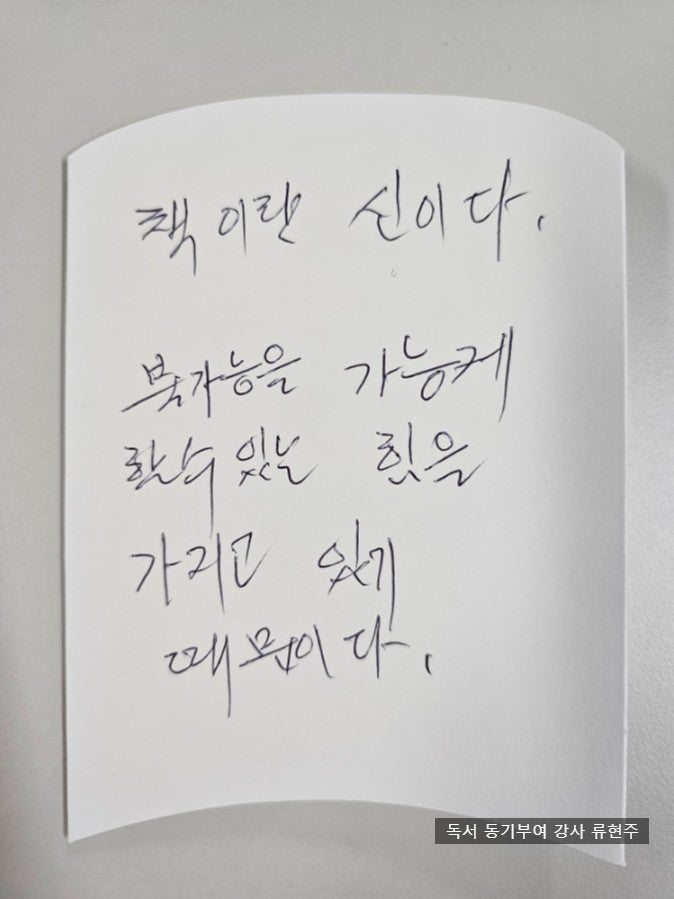 책이란 신이다.
불가능을 가능케
할수 있는 힘을
가지고 있기
때문이다.
독서 동기부여 강사 류현주